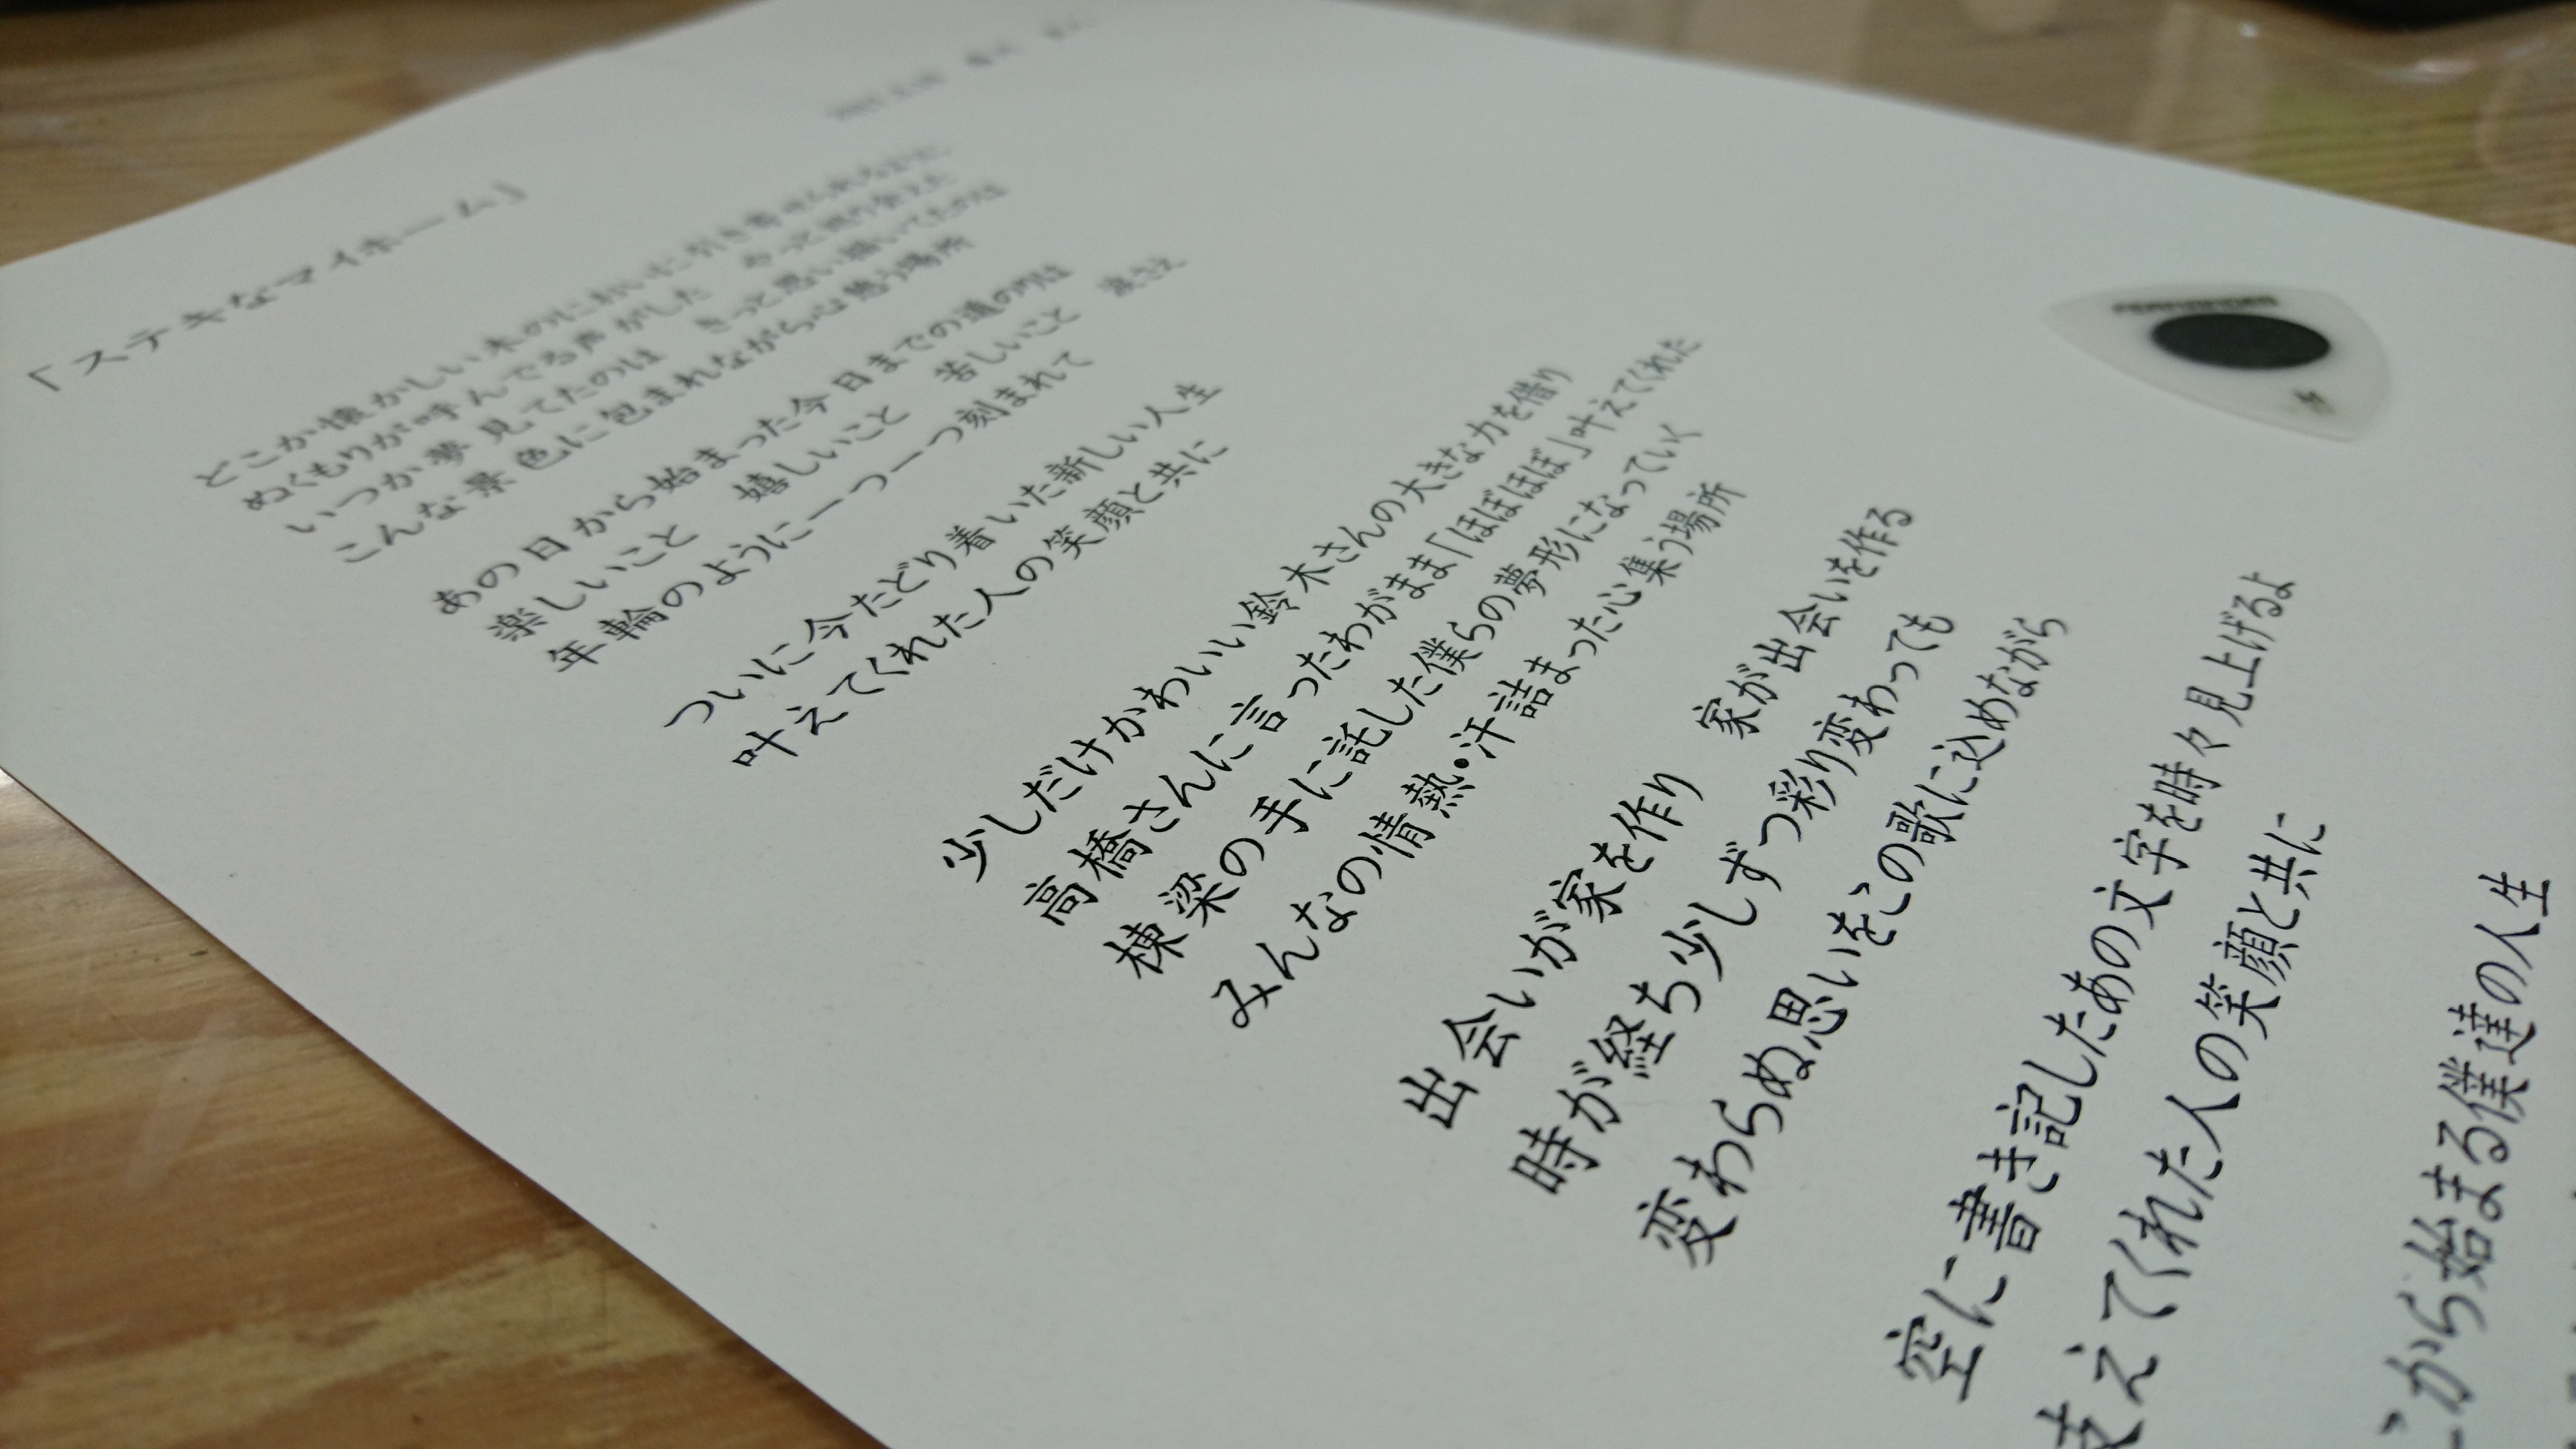 「ステキなマイホーム」
どこか懐かしい木のにおいに引き寄せられるように
ぬくもりが呼んでる声がした　やっと巡り会えた
いつか夢見てたのは　きっと思い描いてたのは
こんな景色に包まれながら心憩う場所
あの日から始まった今日までの道の中は
楽しいこと　嬉しいこと　苦しいこと　涙さえ
年輪のように一つ一つ刻まれて
ついに今たどり着いた新しい人生
叶えてくれた人の笑顔と共に
少しだけかわいい鈴木さんの大きな力を借り
高橋さんに言ったわがまま「ほぼほぼ」叶えてくれた
棟梁の手に託した僕らの夢形になっていく
みんなの情熱・汗詰まった心集う場所
出会いが家を作り　家が出会いを作る
時が経ち少しずつ彩り変わっても
変わらぬ思いをこの歌に込めながら
空に書き記したあの文字を時々見上げるよ
支えてくれた人の笑顔と共に
から始まる僕達の人生